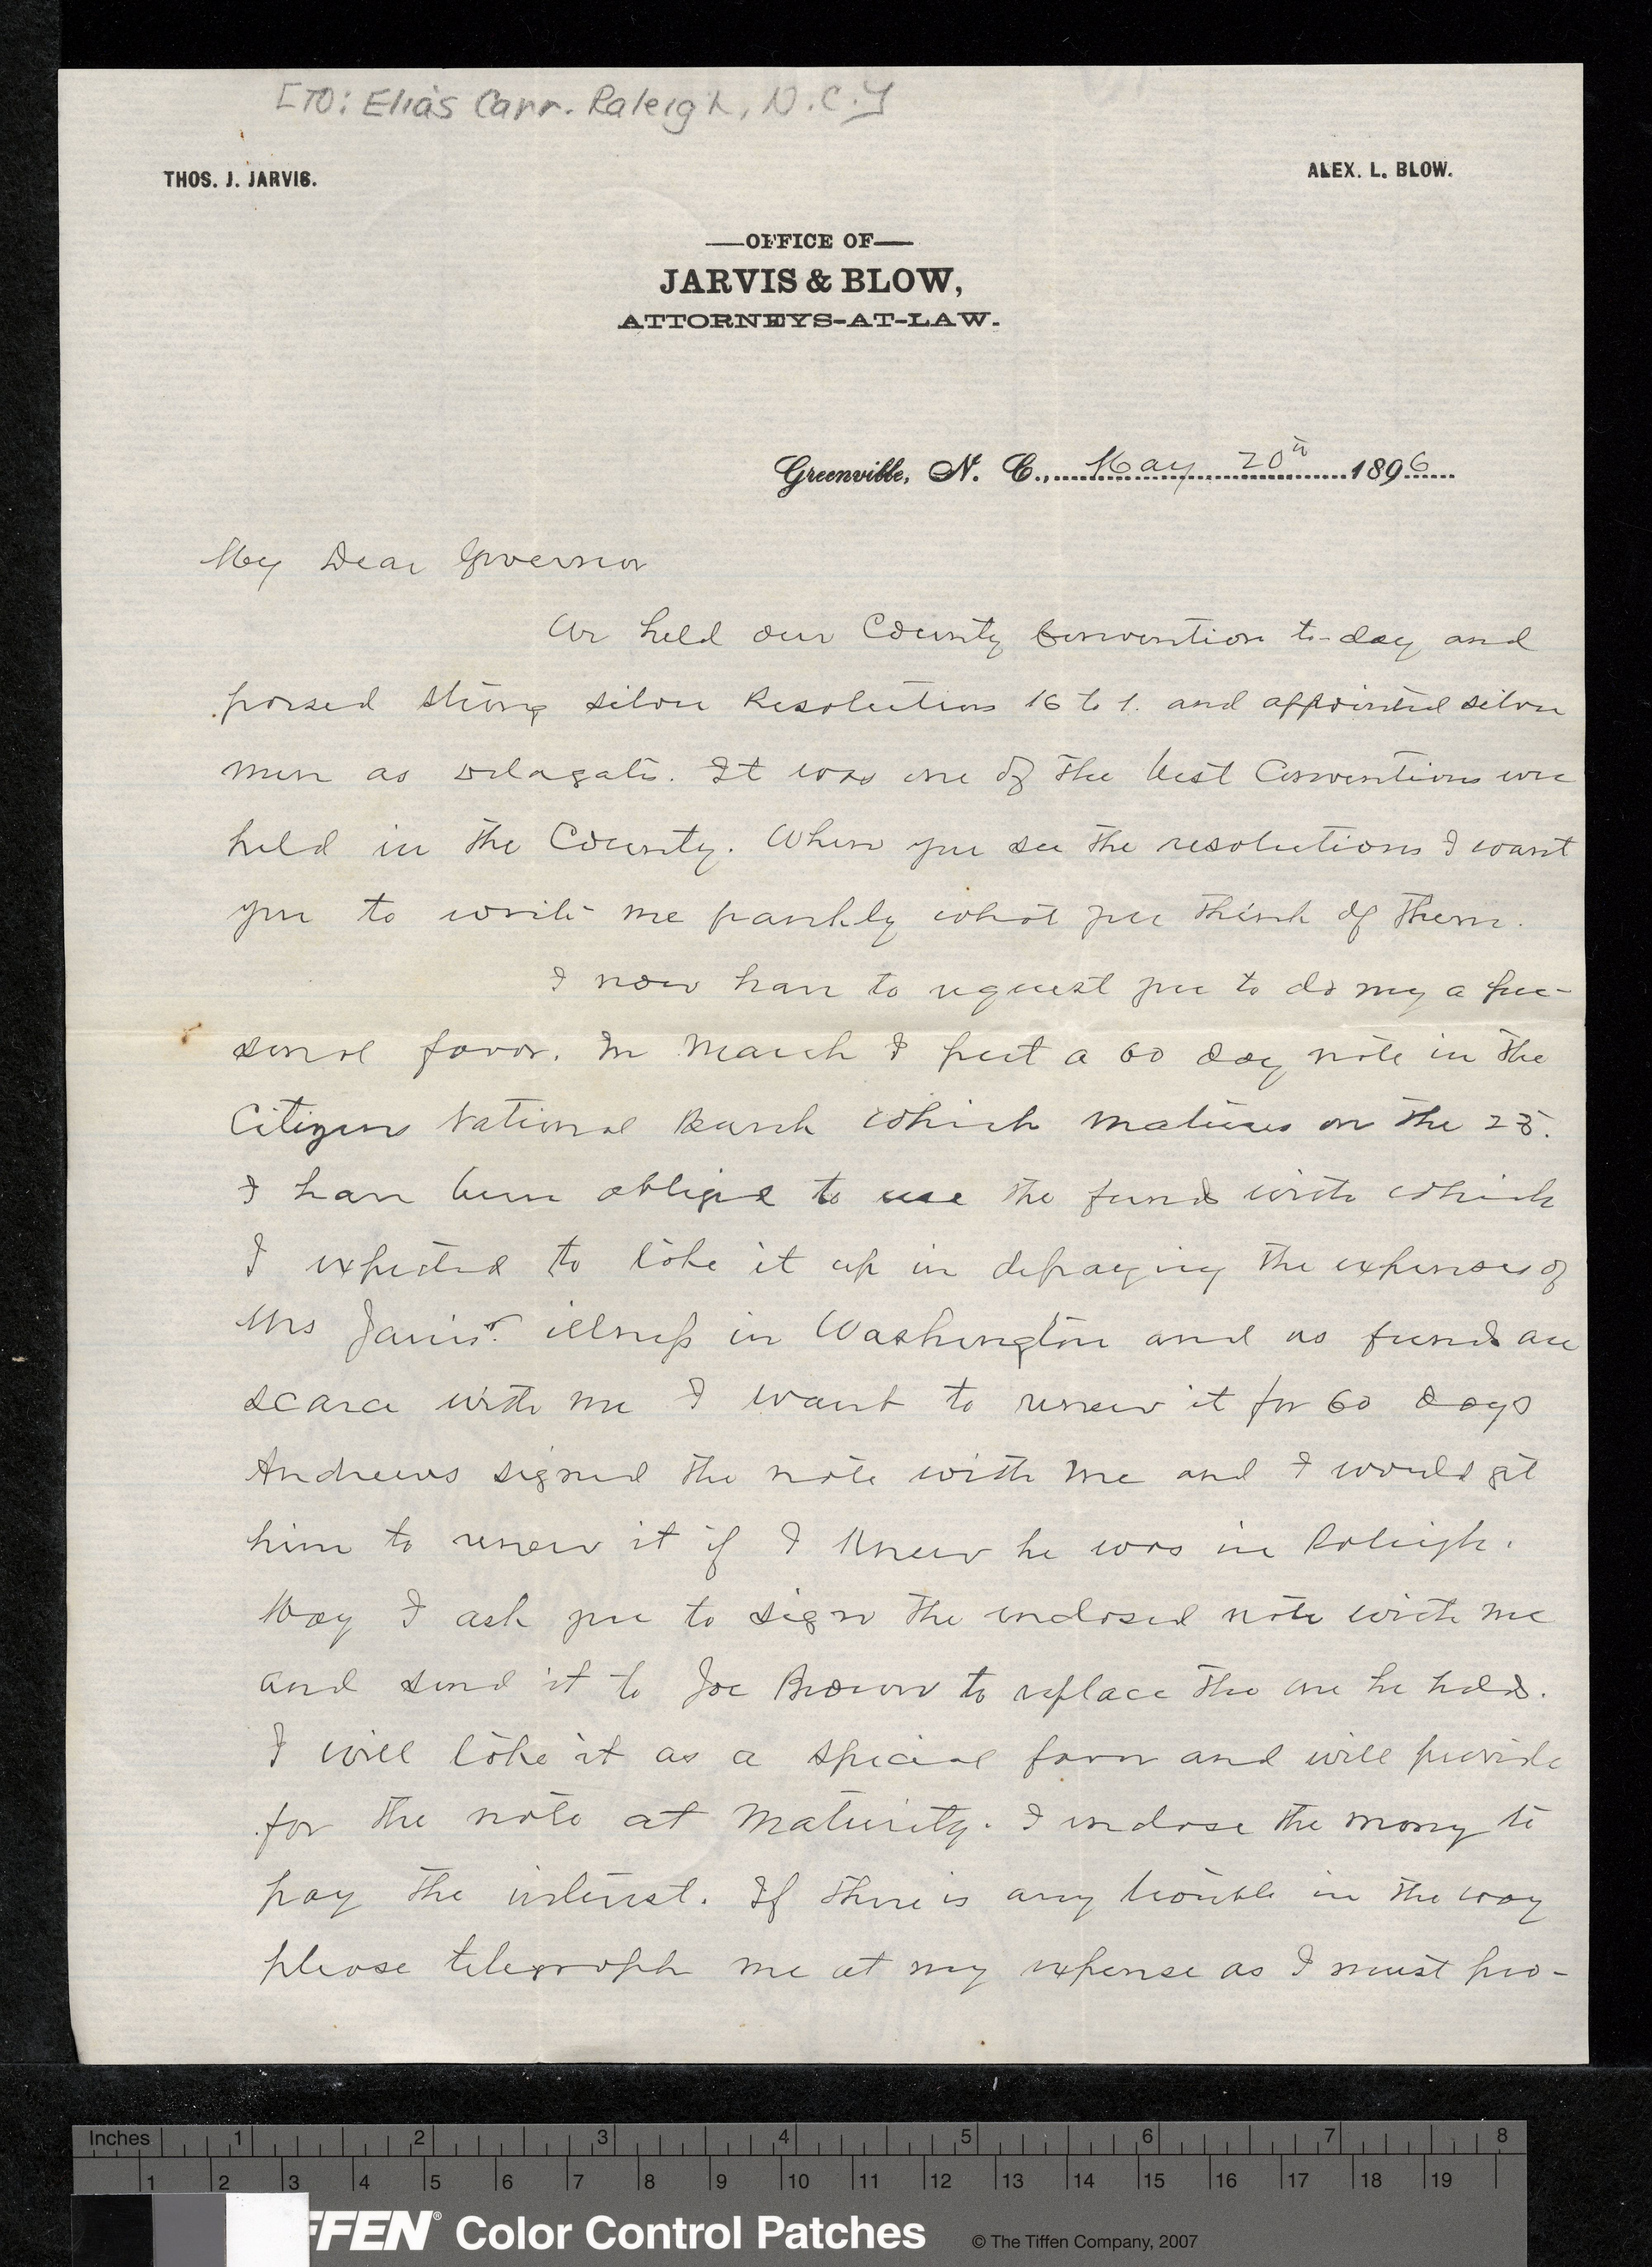 [TO: Elias Carr. Raleigh, N.C.]
THOS. J. JARVIS.
ALEX. L. BLOW.
—OFFICE OF—
JARVIS & BLOW,
ATTORNEYS-AT-LAW.
Greenville, N. C., May 20th 1896
My Dear Governor
We held our County Convention to-day and
passed strong silver Resolutions 16 to 1. and appointed silver
men as delagats. It was one of the best Conventions ever
held in the County. When you see the resolutions I want
you to write me frankly what you think of them.
I now have to request you to do my a per-
sonal favor. In March I put a 60 day note in the
Citizens National Bank which matures on the 25.
I have been obliged to use the funds with which
I expected to take it up in defraying the expenses of
Mrs Jarvis' illness in Washington and as funds are
scarce with me I want to renew it for 60 days
Andrews signed the note with me and I would get
him to renew it if I knew he was in Raleigh.
May I ask you to sign the enclosed note with me
and send it to Joe Brown to replace the one he holds.
I will take it as a special favor and will provide
for the note at maturity. I enclose the money to
pay the interest. If there is any trouble in the way
please telegraph me at my expense as I must pro-
Inches 1 2 3 4 5 6 7 8
1 2 3 4 5 6 7 8 9 10 11 12 13 14 15 16 17 18 19
FFEN® Color Control Patches © The Tiffen Company, 2007